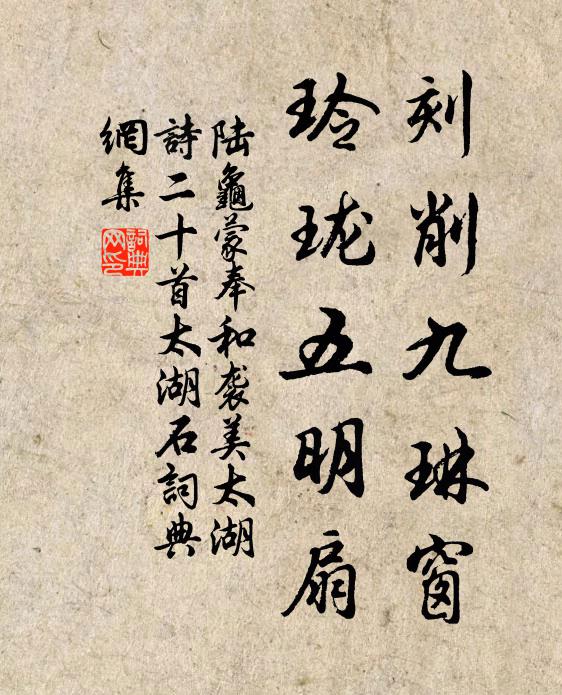 刻削九琳窗
玲珑五明扇
陆龜蒙奉和袭美太湖
詩二十首太湖石詞典
網集
詞典
网印